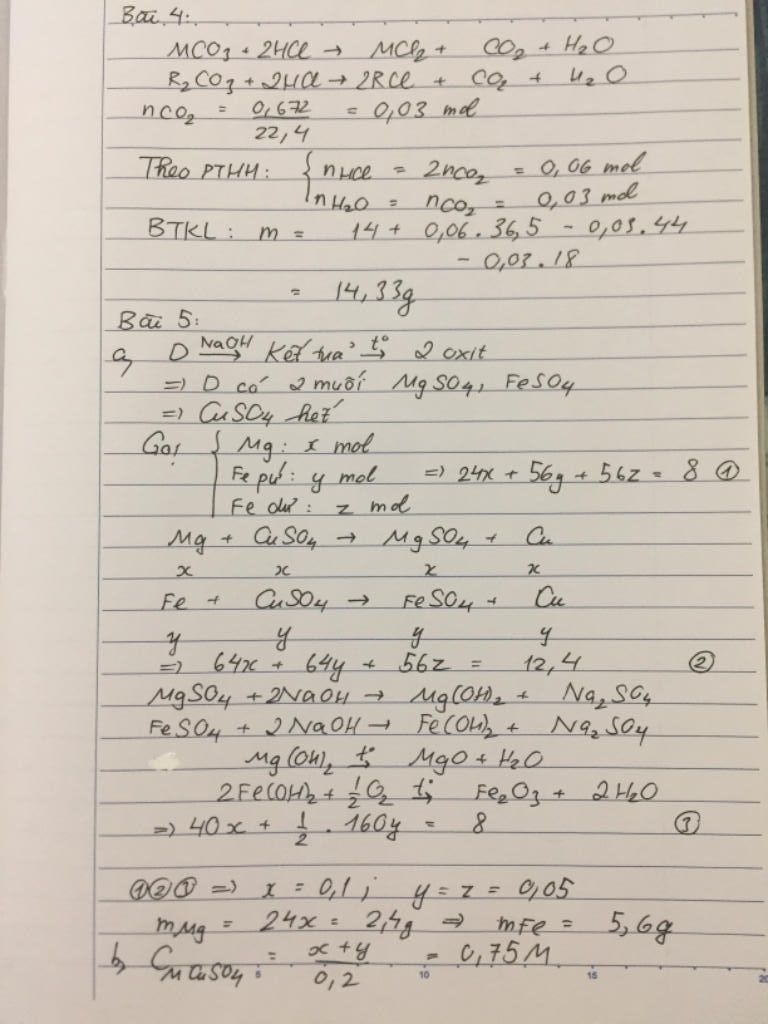 Bài 4:
MCO3 + 2HCl → MCl2 + CO2 + H2O
R2CO3 + 2HCl → 2RCl + CO2 + H2O
nCO2 = 0,672/22,4 = 0,03 mol
Theo PTHH: { nHCl = 2nCO2 = 0,06 mol
nH2O = nCO2 = 0,03 mol
BTKL: m = 14 + 0,06.36,5 - 0,03.44
- 0,03.18
= 14,33g
Bài 5:
a, D NaOH→ Kết tủa t°→ 2 oxit
=> D có 2 muối MgSO4, FeSO4
=> CuSO4 hết
Gọi { Mg: x mol
Fe pứ: y mol => 24x + 56y + 56z = 8 ①
Fe dư: z mol
Mg + CuSO4 → MgSO4 + Cu
x x x x
Fe + CuSO4 → FeSO4 + Cu
y y y y
=> 64x + 64y + 56z = 12,4 ②
MgSO4 + 2NaOH → Mg(OH)2 + Na2SO4
FeSO4 + 2NaOH → Fe(OH)2 + Na2SO4
Mg(OH)2 t°→ MgO + H2O
2Fe(OH)2 + 1/2O2 t°→ Fe2O3 + 2H2O
=> 40x + 1/2 . 160y = 8 ③
①②③ => x = 0,1; y = z = 0,05
mMg = 24x = 2,4g => mFe = 5,6g
b, CM CuSO4 = x+y/0,2 = 0,75M
5 10 15 20